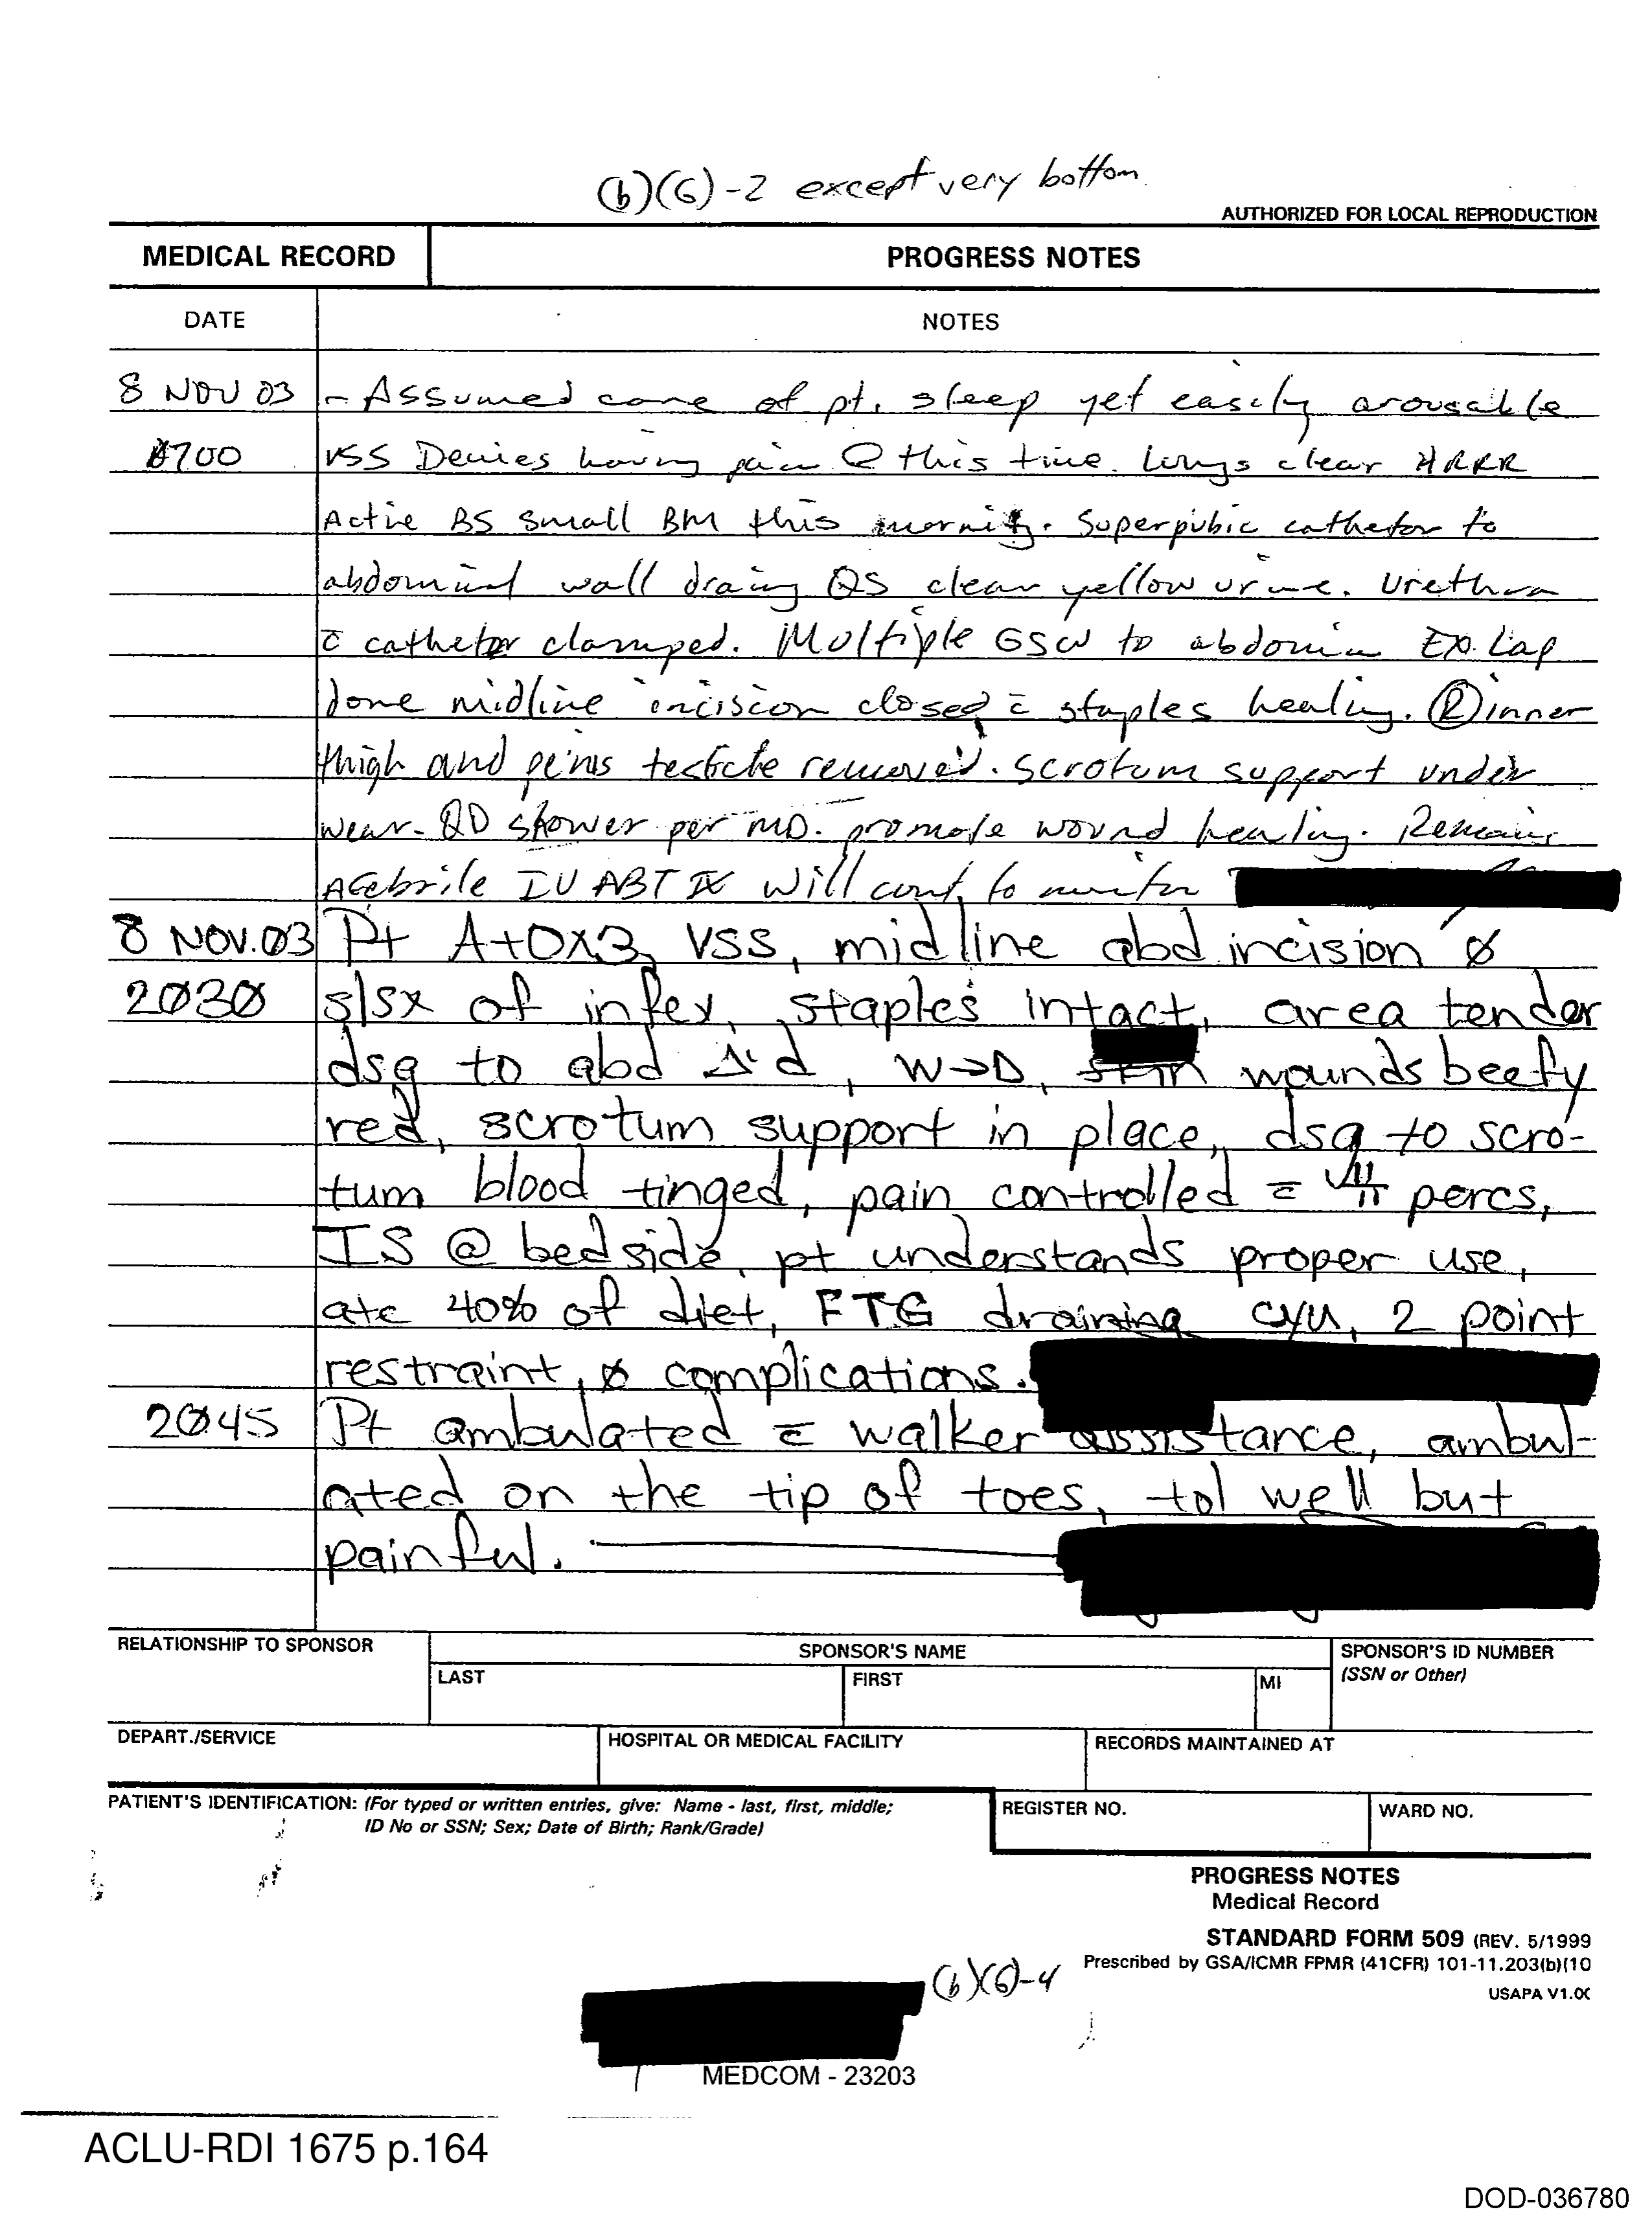 (b)(6)-2 except very bottom.
AUTHORIZED FOR LOCAL REPRODUCTION
MEDICAL RECORD PROGRESS NOTES
DATE NOTES
8 NOV 03 - Assumed care of pt. sleep yet easily arousable
0700 VSS Denies having pain @ this time. Lungs clear HRRR
Active BS small BM this morning. Superpubic catheter to
abdominal wall draing QS clear yellow urine. Urethra
c̄ catheter clamped. Multiple GSW to abdomin Ex. Lap
done midline incision closed c̄ staples healing. Ⓡ inner
thigh and penis testicle removed. scrotum support under
wear. QD shower per MD. promote wound healing. Remains
Afebrile IV ABT IX will cont. to monitor
8 NOV.03 Pt A+OX3, VSS, midline abd incision Ø
2030 s/sx of infex, staples intact, area tender
dsg to abd Δ'd, W→D, wounds beefy
red, scrotum support in place, dsg to scro-
tum blood tinged, pain controlled c̄ percs,
IS @ bedside, pt understands proper use,
ate 40% of diet, FTG draining cyu, 2 point
restraint, Ø complications.
2045 Pt ambulated c̄ walker assistance, ambul-
ated on the tip of toes, tol well but
painful.
RELATIONSHIP TO SPONSOR SPONSOR'S NAME SPONSOR'S ID NUMBER
LAST FIRST MI (SSN or Other)
DEPART./SERVICE HOSPITAL OR MEDICAL FACILITY RECORDS MAINTAINED AT
PATIENT'S IDENTIFICATION: (For typed or written entries, give: Name - last, first, middle; REGISTER NO. WARD NO.
ID No or SSN; Sex; Date of Birth; Rank/Grade)
PROGRESS NOTES
Medical Record
STANDARD FORM 509 (REV. 5/1999
Prescribed by GSA/ICMR FPMR (41CFR) 101-11.203(b)(10
USAPA V1.0
(b)(6)-4
MEDCOM - 23203
ACLU-RDI 1675 p.164
DOD-036780